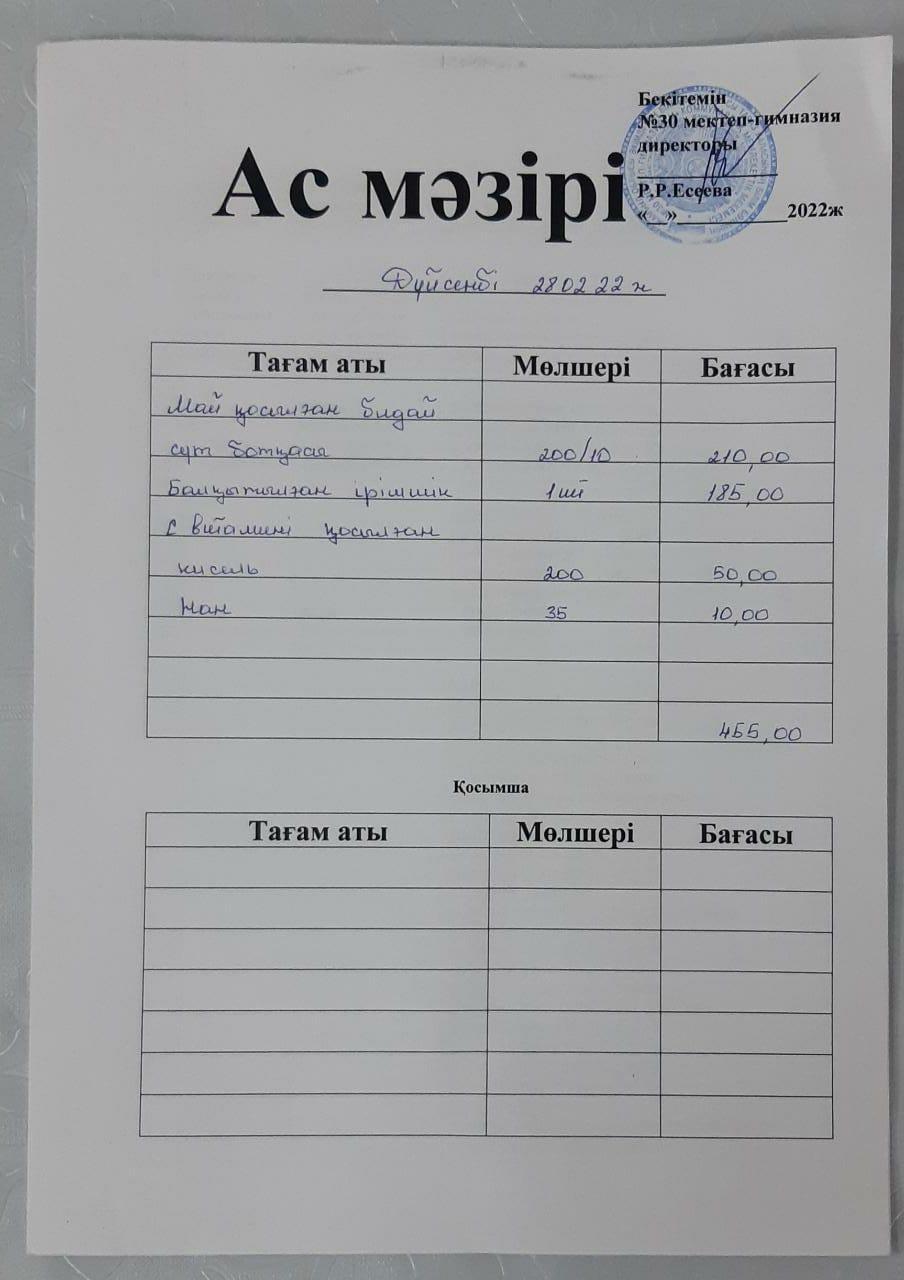 Бекітемін
№30 мектеп-гимназия
директоры
Р.Р.Есеева
«__»___________2022ж
Ас мәзірі
Дүйсенбі 28 02 22 ж
Тағам аты Мөлшері Бағасы
Май қосылған бидай
сүт ботқасы 200/10 210,00
Балқытылған ірімшік 1 шт 185,00
С витамині қосылған
кисель 200 50,00
Нан 35 10,00
455,00
Қосымша
Тағам аты Мөлшері Бағасы